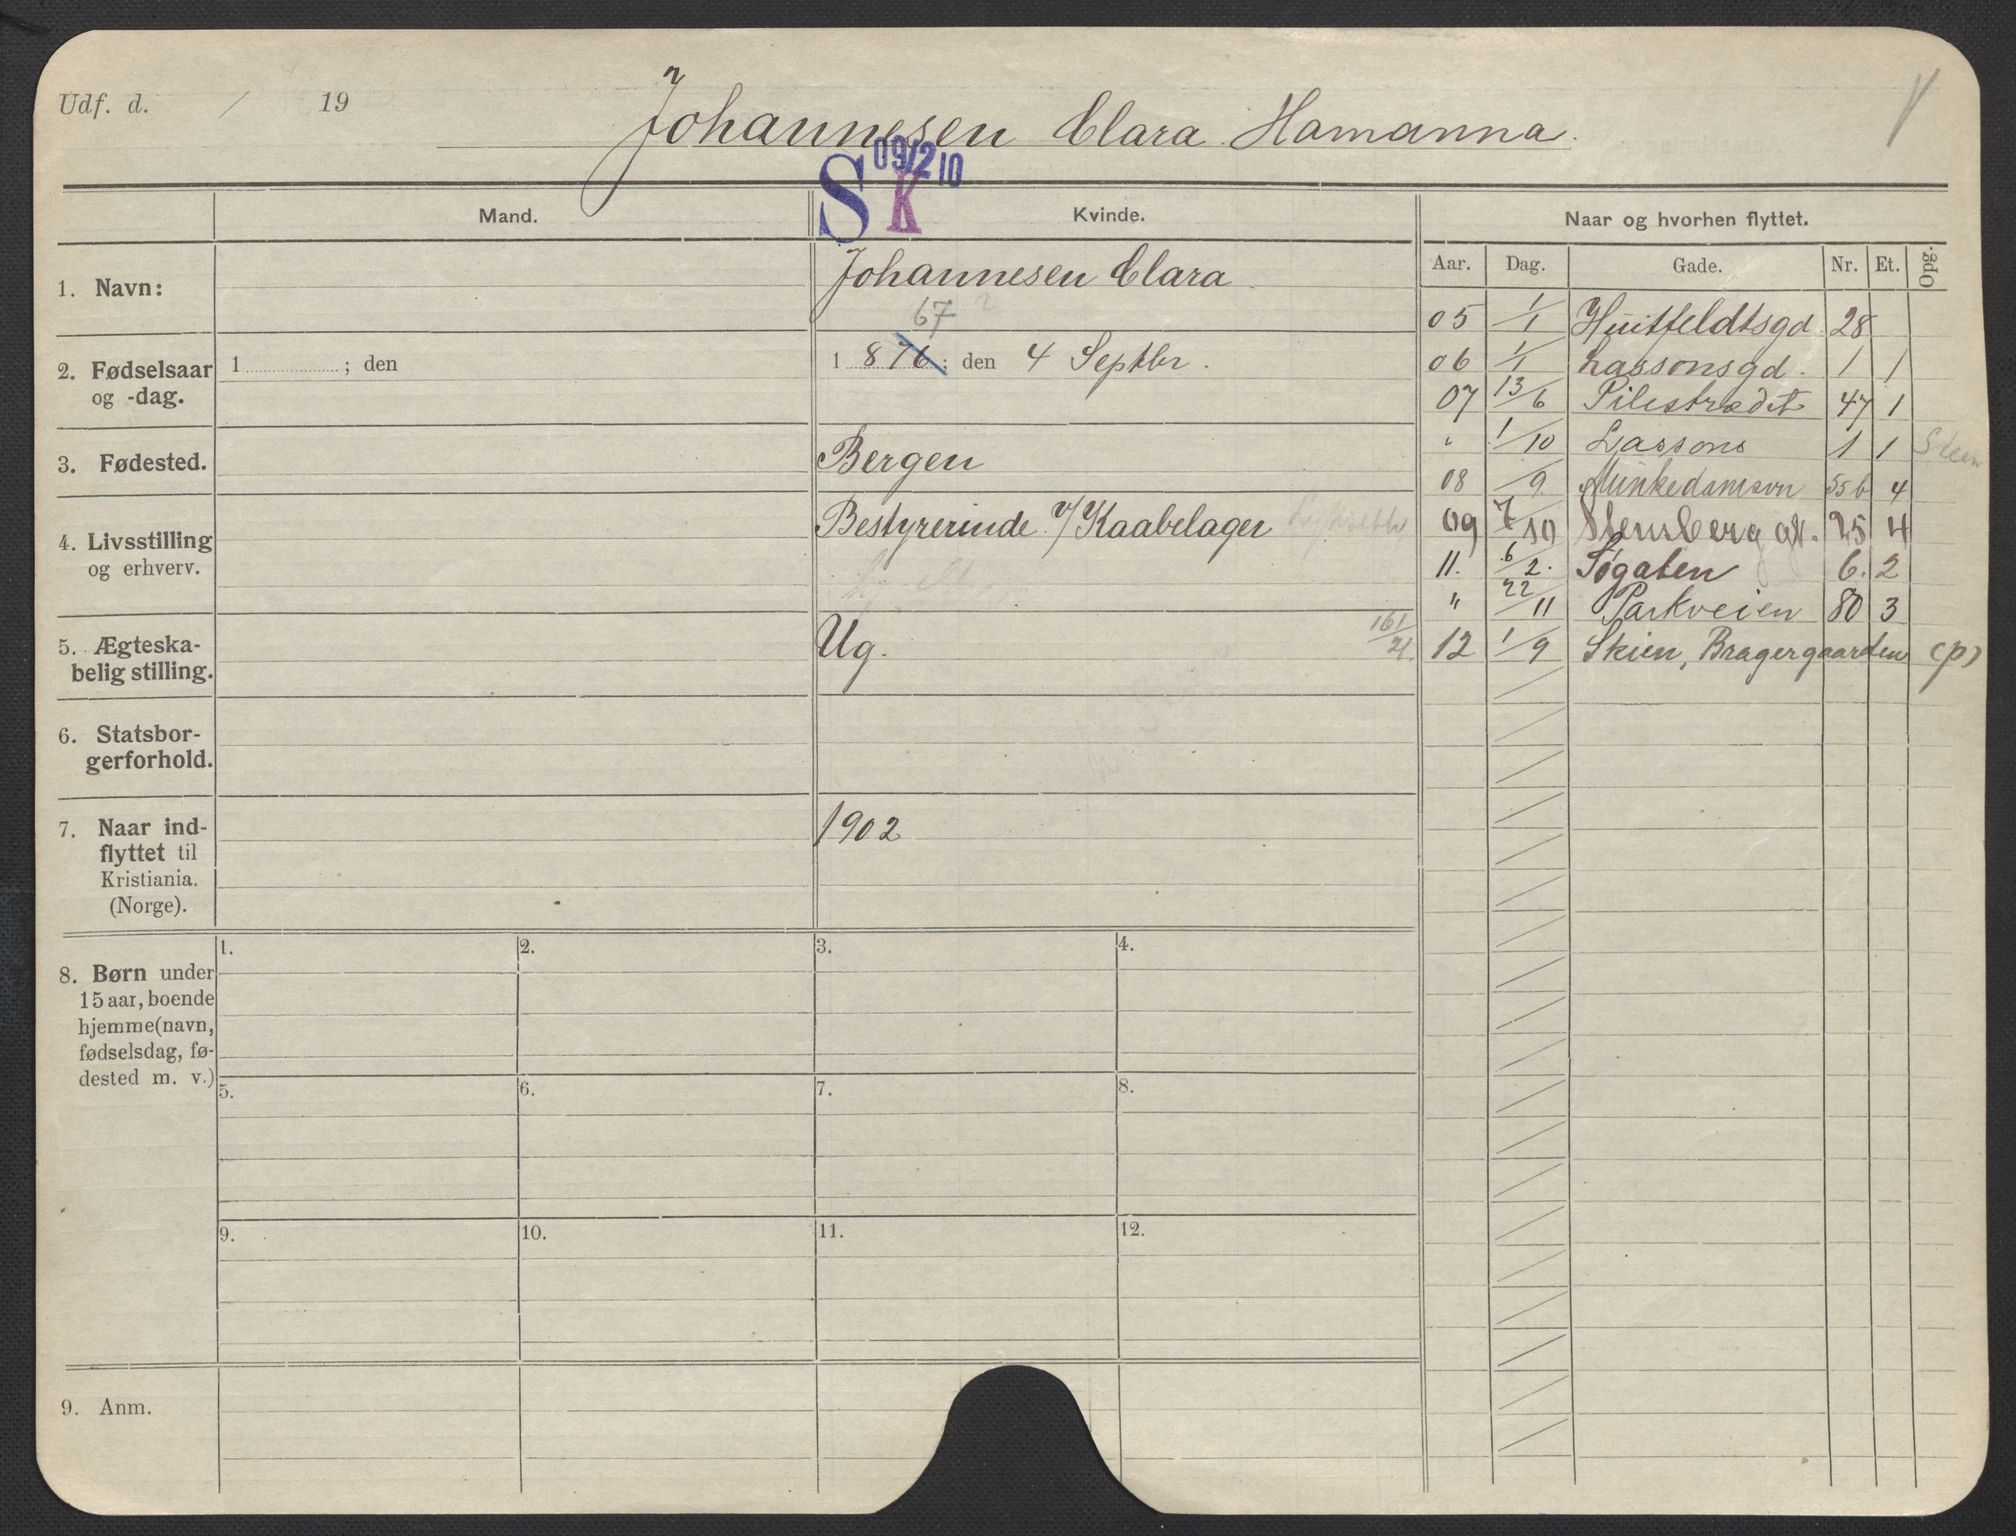 Udf. d. / 19
Johannesen Clara Hamanna.
09/2 10
S K
Mand.
Kvinde.
Naar og hvorhen flyttet.
Aar. Dag. Gade. Nr. Et. Opg.
1. Navn:
Johannesen Clara
2. Fødselsaar
og -dag.
1 ; den
67
1 876 ; den 4 Septbr.
3. Fødested.
Bergen
4. Livsstilling
og erhverv.
Bestyrerinde v/ Kaabelager
5. Ægteska-
belig stilling.
Ug.
161/21.
6. Statsbor-
gerforhold.
7. Naar ind-
flyttet til
Kristiania.
(Norge).
1902
8. Børn under
15 aar, boende
hjemme (navn,
fødselsdag, fø-
dested m. v.)
1. 2. 3. 4.
5. 6. 7. 8.
9. 10. 11. 12.
9. Anm.
05 1/1 Huitfeldtsgd. 28
06 1/1 Lassonsgd. 1 1
07 13/6 Pilestrædet 47 1
" 1/10 Lassons 1 1 Steen
08 /9. Munkedamsvn 55b 4
09 7/10 Stensberg gt. 25 4
11. 6/2. Søgaten 6. 2
" 22/11 Parkveien 80 3
12 1/9 Skien, Bragergaarden (p)